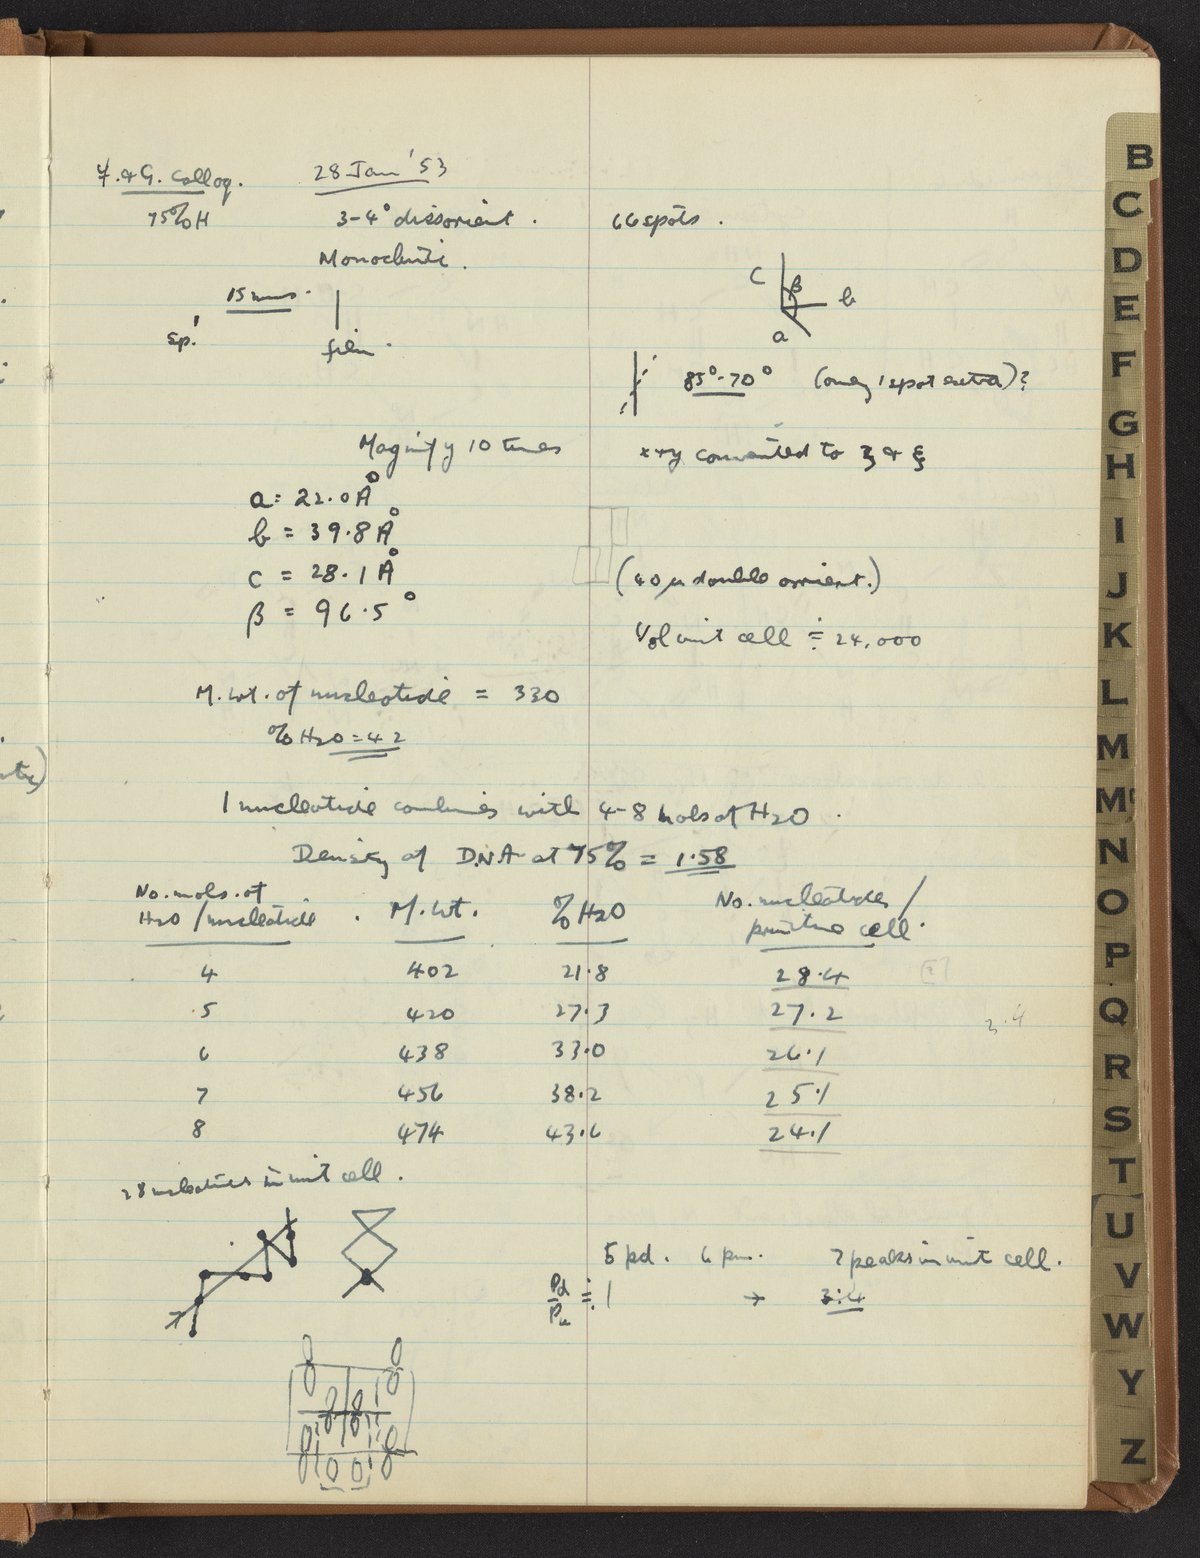 F. & G. Colloq. 28 Jan '53
75% H 3-4° disorient. 66 spots.
Monoclinic.
15 mms.
sp! film.
C β b
a
85°-70° (only 1 spot extra)?
Magnify 10 times x + y converted to ζ & ξ
a = 22.0 Å
b = 39.8 Å
c = 28.1 Å (40 μ double orient.)
β = 96.5°
Vol unit cell ≑ 24,000
M. wt. of nucleotide = 330
% H2O = 42
1 nucleotide combines with 4-8 mols of H2O.
Density of DNA at 75% = 1.58
No. mols. of H2O / nucleotide . M. wt. % H2O No. nucleotides / primitive cell.
4 402 21.8 28.4
5 420 27.3 27.2
3.4
6 438 33.0 26.1
7 456 38.2 25.1
8 474 43.6 24.1
28 nucleotides in unit cell.
5 pd. 6 pu. 7 peaks in unit cell.
Pd/Pu ≑ 1 → 3:4
B
C
D
E
F
G
H
I
J
K
L
M
Mc
N
O
P
Q
R
S
T
U
V
W
Y
Z